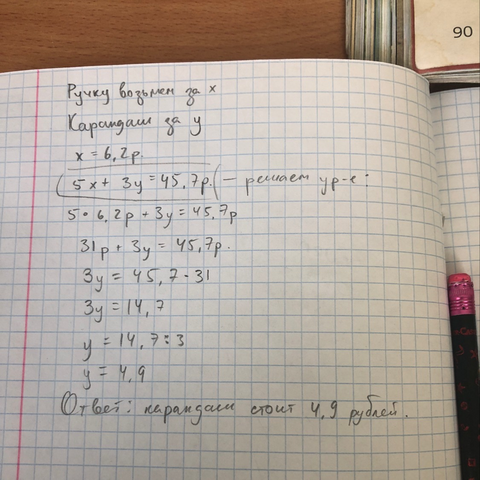 90
Ручку возьмем за x
Карандаш за y
x = 6,2р.
5x + 3y = 45,7р. — решаем ур-е:
5 • 6,2р + 3y = 45,7р
31р + 3y = 45,7р.
3y = 45,7 - 31
3y = 14,7
y = 14,7 : 3
y = 4,9
Ответ: карандаш стоит 4,9 рублей.